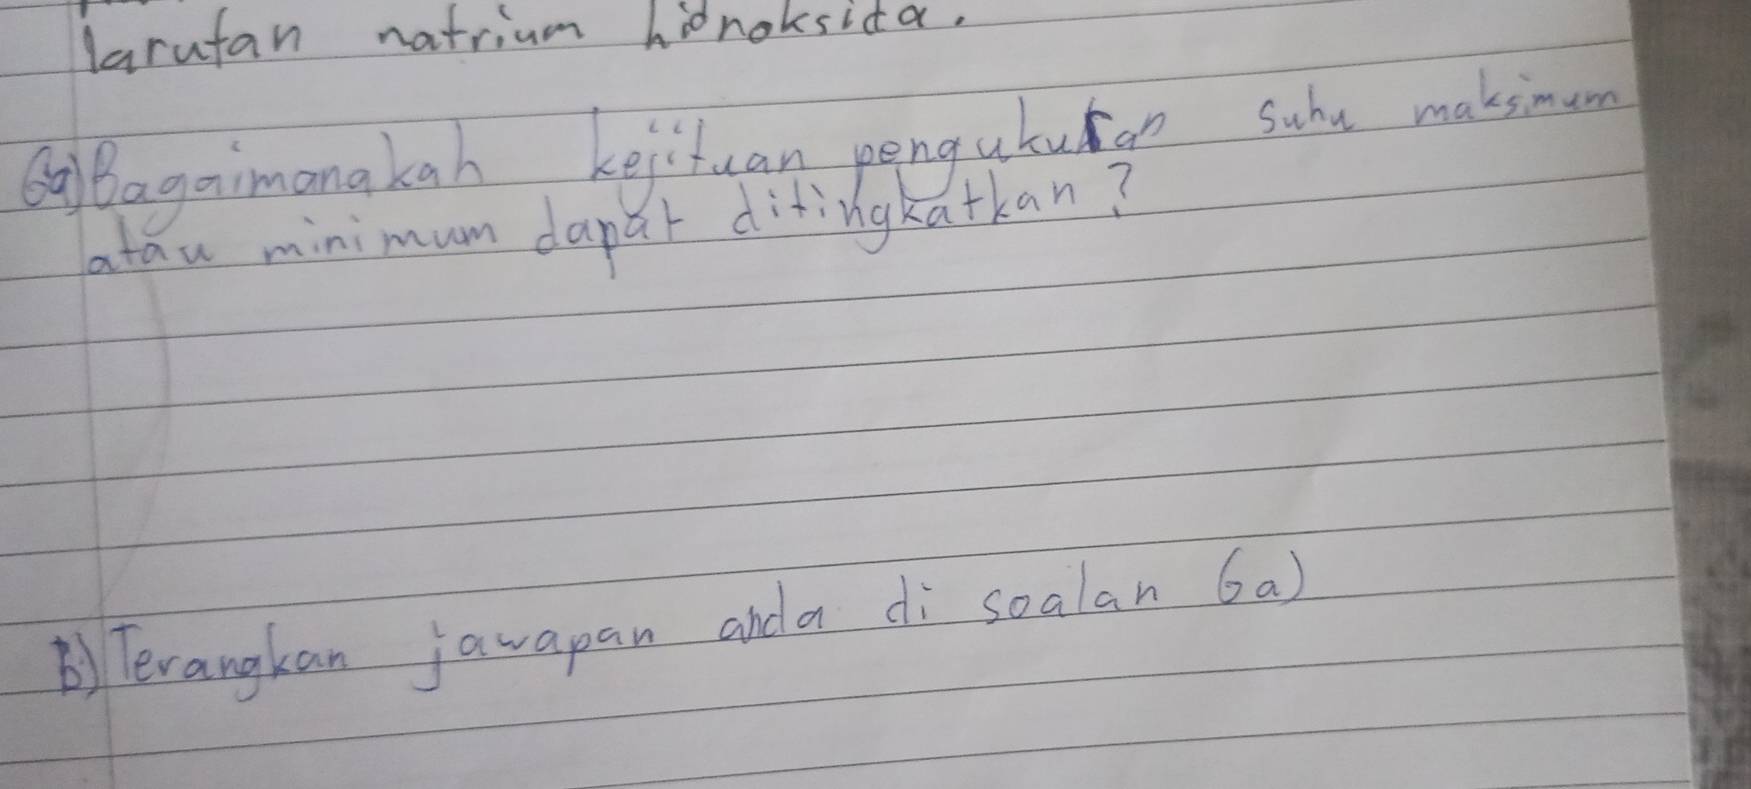 larutan natrium hidroksida.
6a) Bagaimanakah kejituan pengukuran suhu maksimum
atau minimum dapat ditingkatkan?
B) Terangkan jawapan anda di soalan 6a)